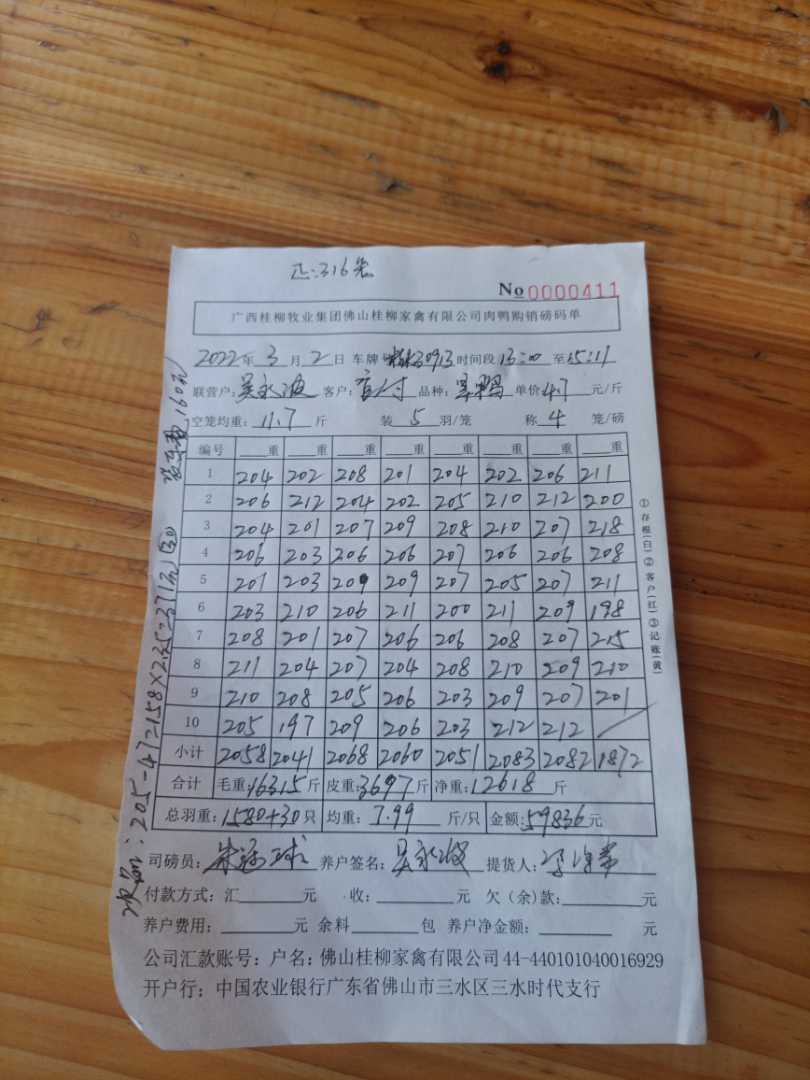 正:316笼
No 0000411
广西桂柳牧业集团佛山桂柳家禽有限公司肉鸭购销磅码单
2022年 3月 2日 车牌 0913 时间段 13:00 至 15:11
联营户: 吴永波 客户: 品种: 单价 4.7 元/斤
空笼均重: 11.7 斤 装 5 羽/笼 称 4 笼/磅
编号 重 重 重 重 重 重 重 重
1 204 202 208 201 204 202 206 211
2 206 212 204 202 205 210 212 200
3 204 201 207 209 208 210 207 218
4 206 203 206 206 207 206 206 208
5 201 203 209 209 207 205 207 211
6 203 210 206 211 200 211 209 198
7 208 201 207 206 206 208 207 215
8 211 204 207 204 208 210 209 210
9 210 208 205 206 203 209 207 201
10 205 197 209 206 203 212 212
小计 2058 2041 2068 2060 2051 2083 2082 1872
合计 毛重: 16315 斤 皮重: 3697 斤 净重: 12618 斤
总羽重: 1580+30 只 均重: 7.99 斤/只 金额: 59836 元
司磅员: 球 养户签名: 吴永波 提货人:
付款方式: 汇 元 收: 元 欠(余)款: 元
养户费用: 元 余料 包 养户净金额: 元
公司汇款账号: 户名: 佛山桂柳家禽有限公司 44-440101040016929
开户行: 中国农业银行广东省佛山市三水区三水时代支行
①存根(白)②客户(红)③记账(黄)
205-47=158×2.35=371元 160元